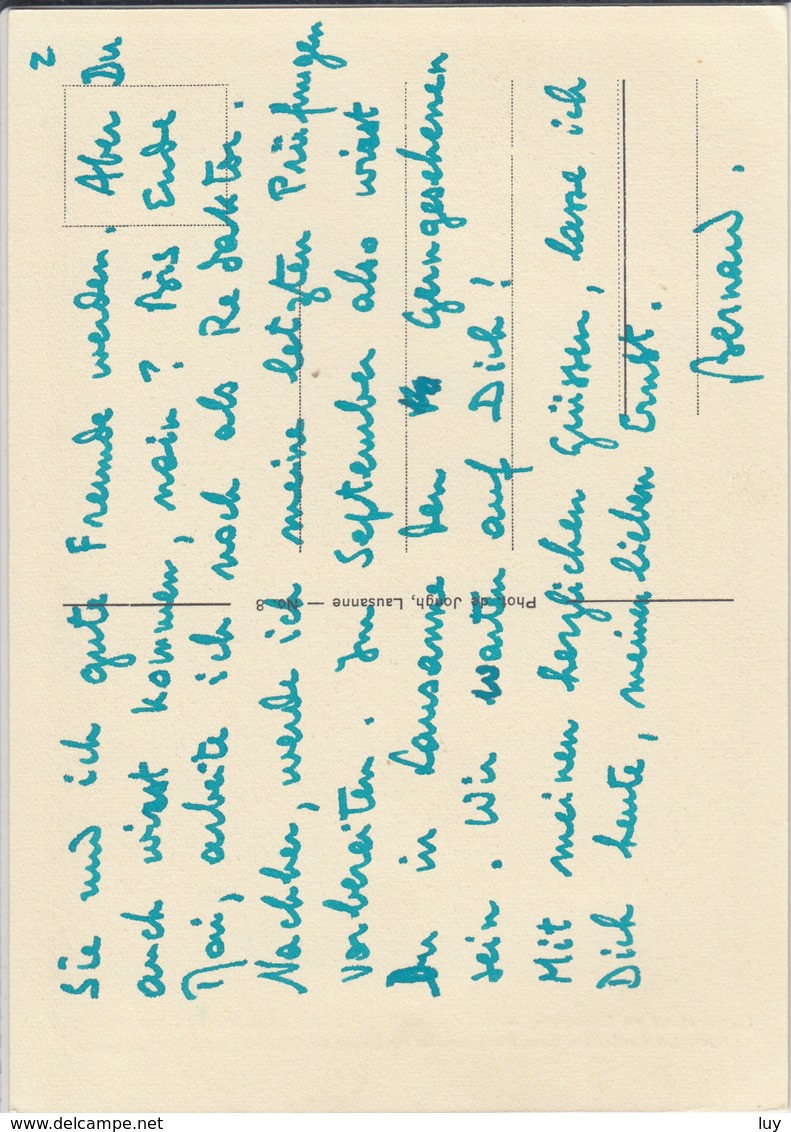 2
Sie und ich gute Freunde werden. Aber Du
auch wirst kommen, nein? Bis Ende
Mai, arbeite ich noch als Redaktor.
Nachher, werde ich meine letzten Prüfungen
vorbereiten. Im September also wirst
Du in Lausanne den Gerngesehenen
sein. Wir warten auf Dich!
Mit meinen herzlichen Grüssen, lasse ich
Dich heute, meinen lieben Ernst.
Bernard.
Phot. de Jongh, Lausanne — No. 8
www.delcampe.net
luy